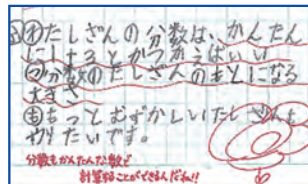 ㋻たしざんの分数は、かんたん
にするとかつかえばいい
㋡分数のたしざんのもとになる
大きさ
㋲もっとむずかしいたしざんも
やりたいです。
分数もかんたんな数で
計算することができるんだね!!